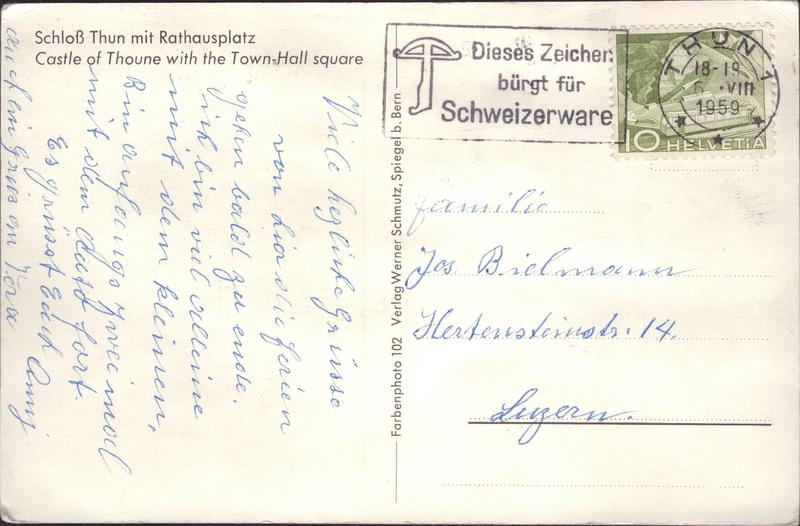 Schloß Thun mit Rathausplatz
Castle of Thoune with the Town-Hall square
Dieses Zeichen
bürgt für
Schweizerware
THUN 1
18-19
6. VIII
1959
10 HELVETIA
Viele herzliche Grüsse
von hier die Ferien
gehen bald zu ende.
ich bin viel alleine
mit dem kleinen,
Bin anfangs zweimal
mit dem Auto fort.
Es grüsst Euch Anny
auch ein Gruss an Vera
Farbenphoto 102 Verlag Werner Schmutz, Spiegel b. Bern
Familie
Jos Bielmann
Hertensteinstr. 14.
Luzern.